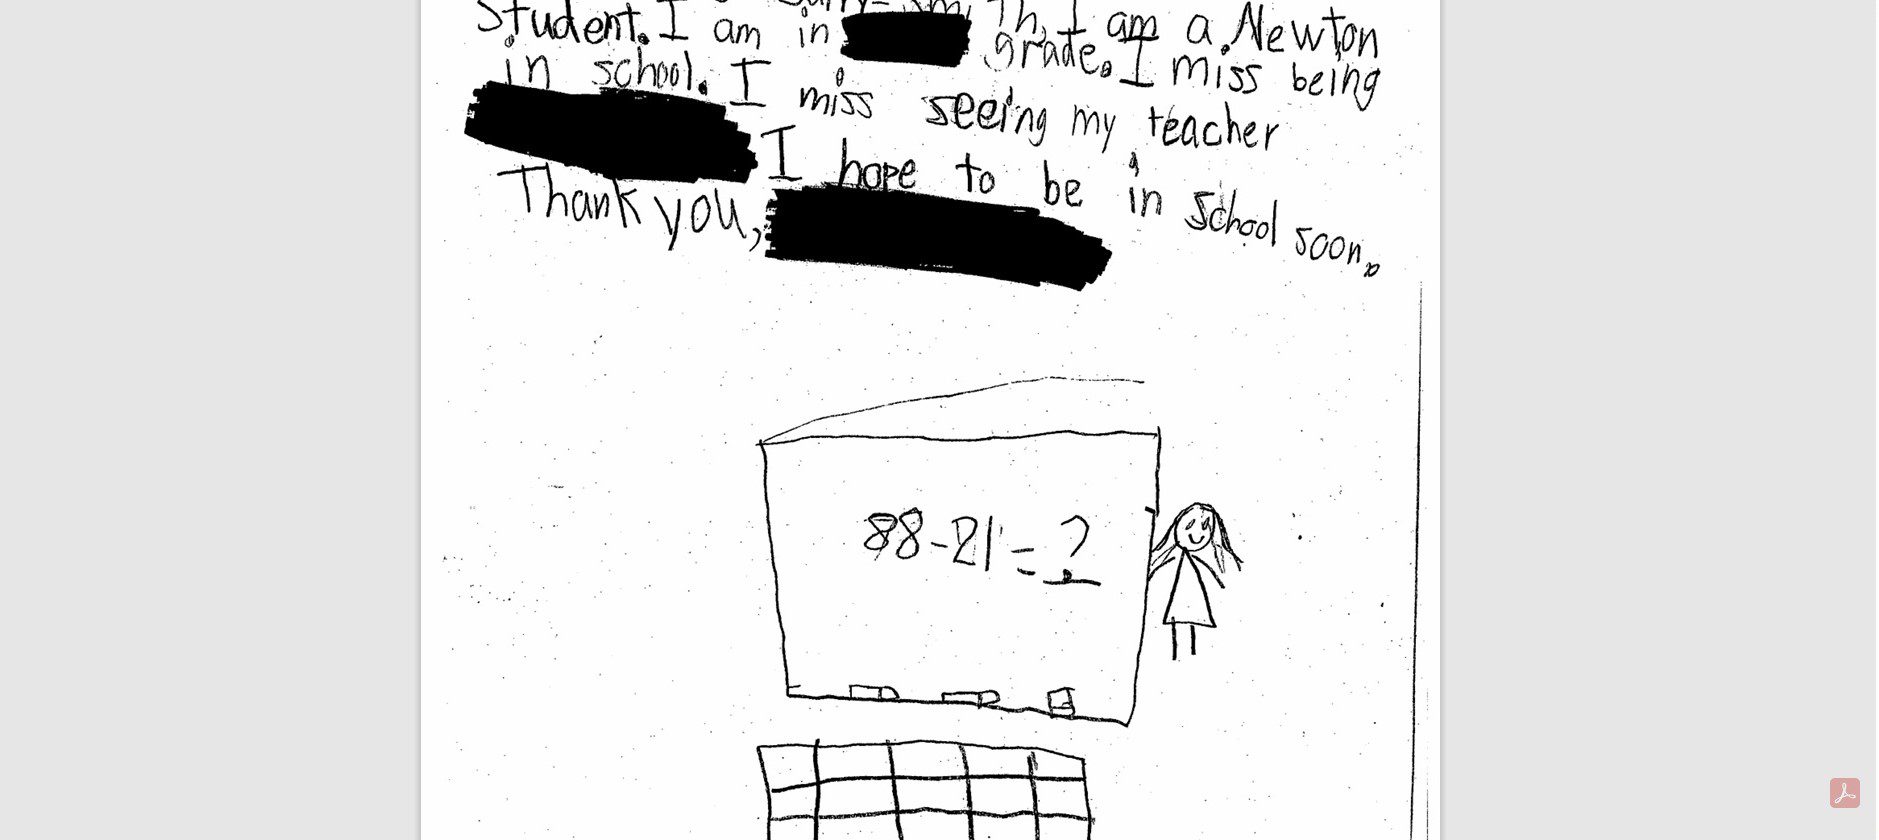 I am a Newton
Student. I am in grade. I miss being
in school. I miss seeing my teacher
I hope to be in school soon.
Thank you,
88-21=?